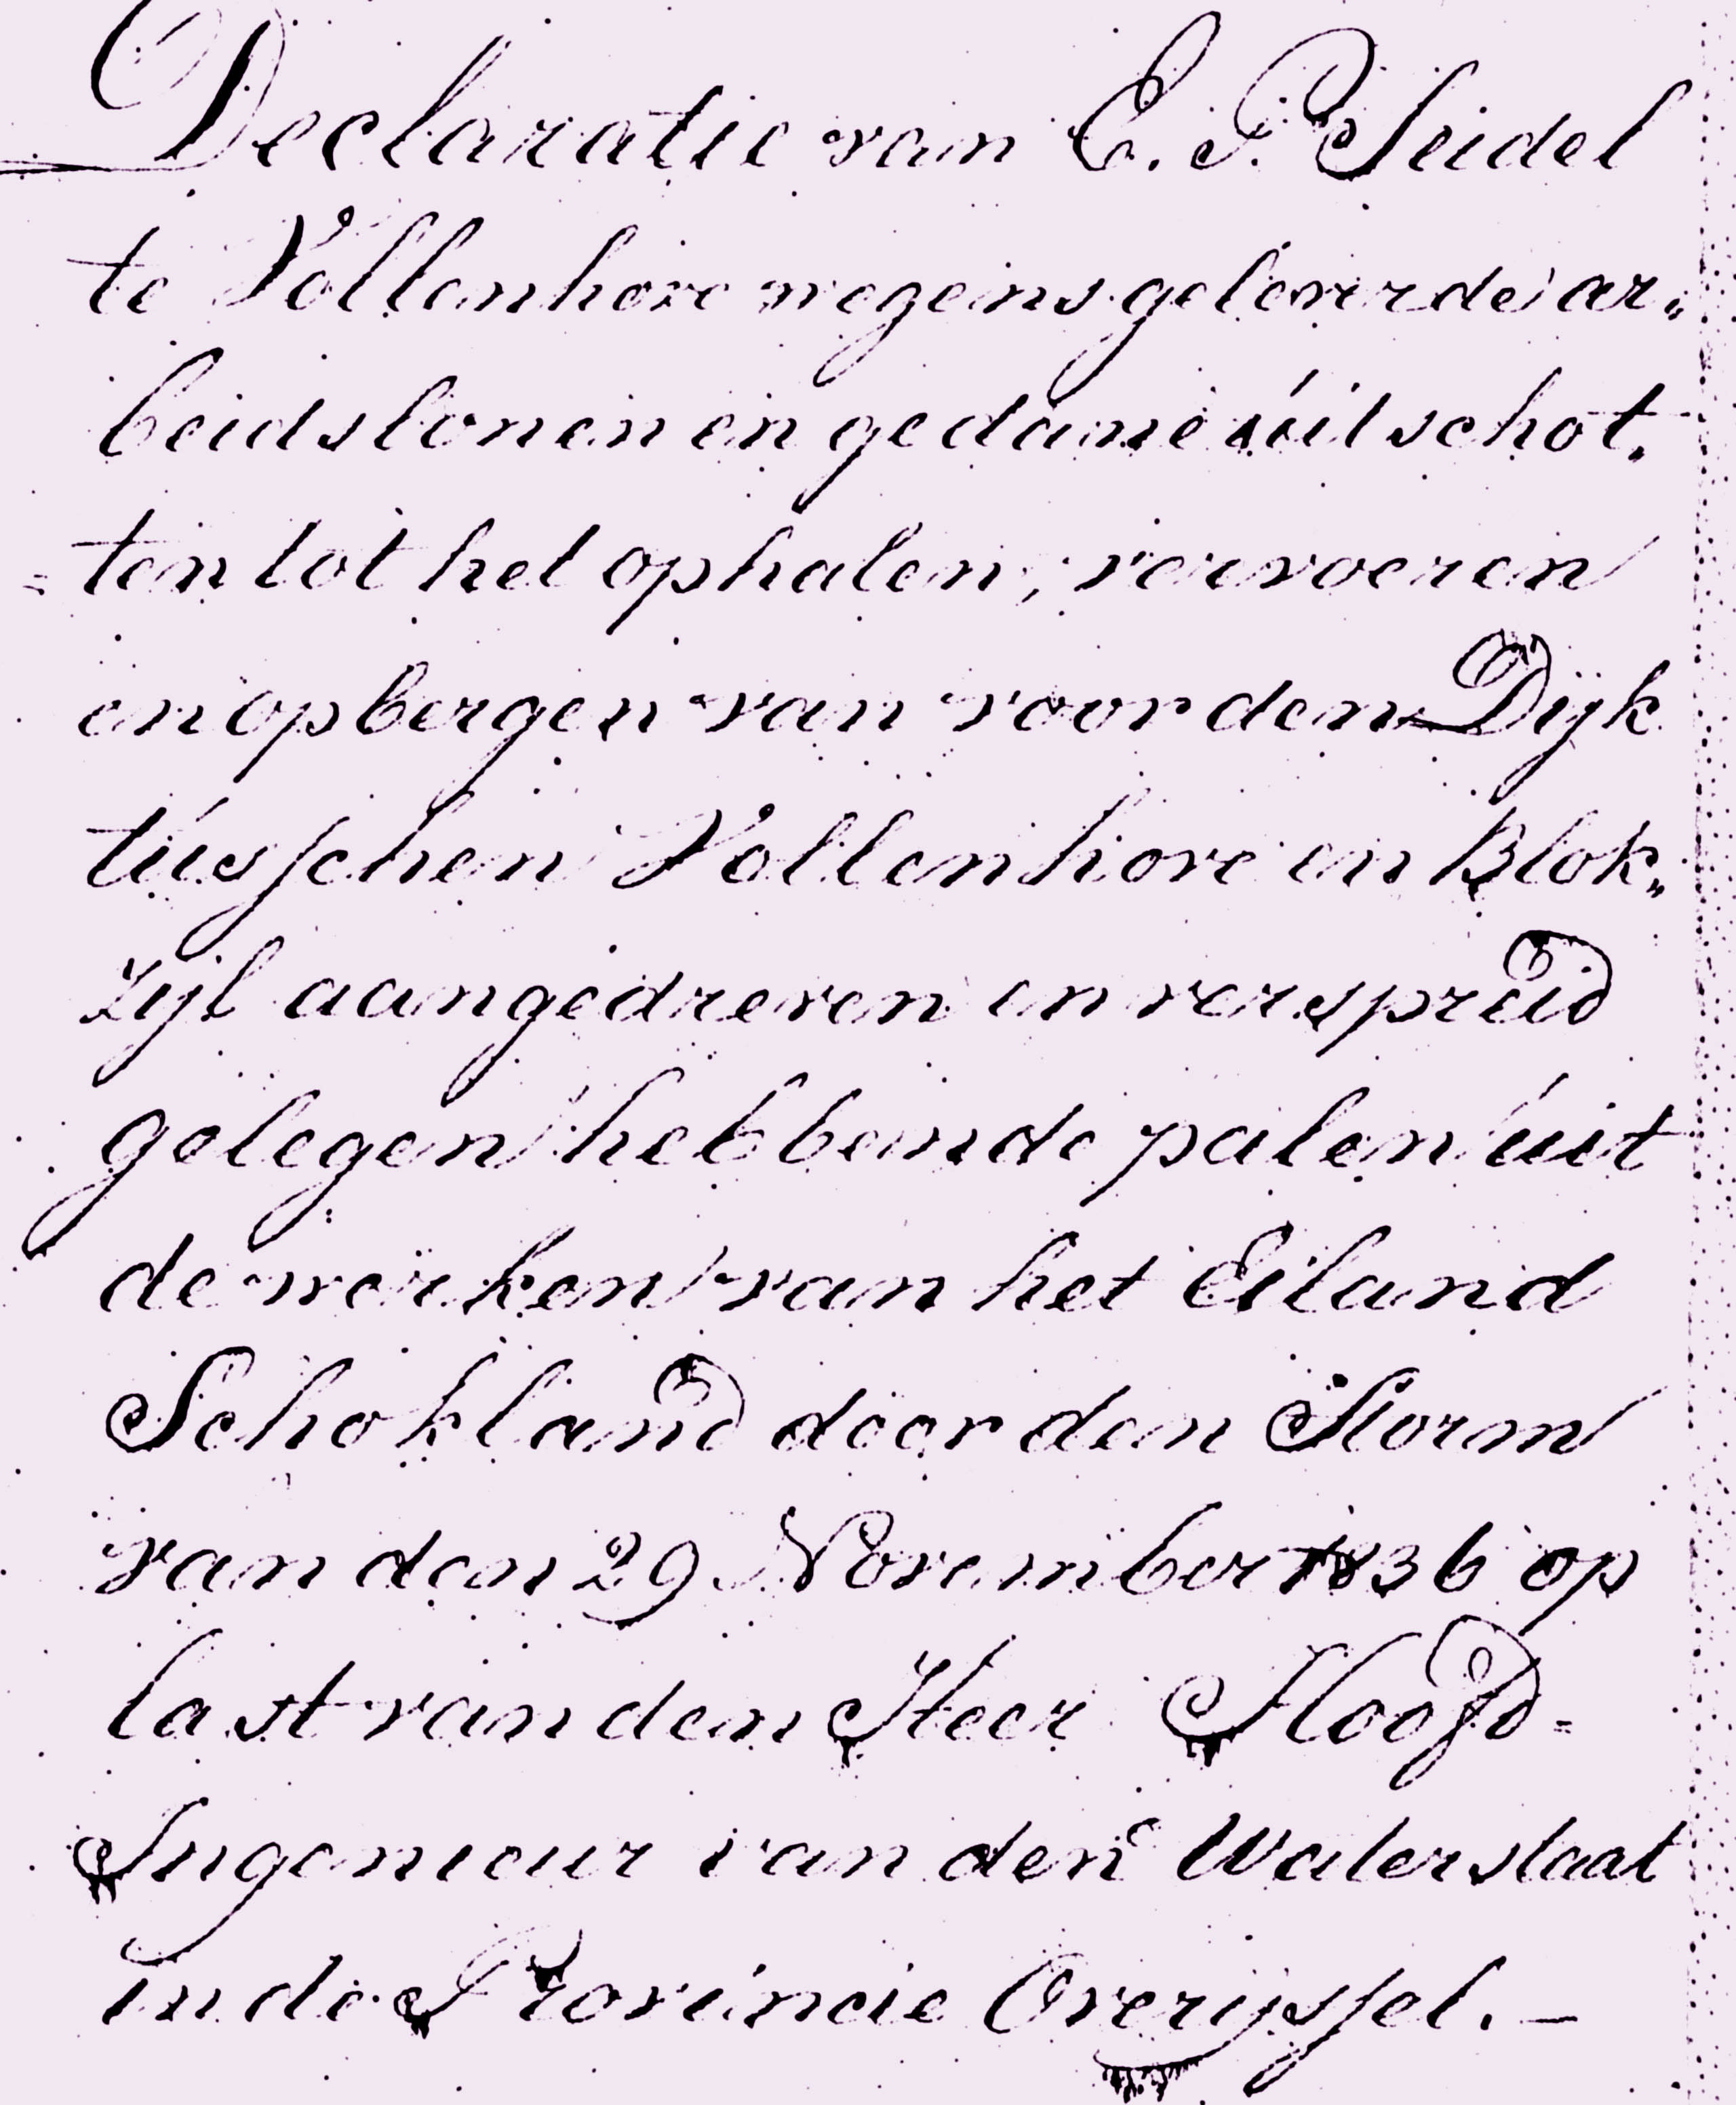 Declaratie van E. P. Seidel
te Vollenhove wegens geleverde ar„
beidslonen en gedane uitschot„
=ten tot het ophalen, vervoeren
en opbergen van voor den Dijk
tusschen Vollenhove en Blok„
zijl aangedreven en verspreid
gelegen hebbende palen uit
de werken van het Eiland
Schokland door den Storm
van den 29 November 1836 op
last van den Heer Hoofd=
Ingenieur van den Waterstaat
in de Provincie Overijssel. —